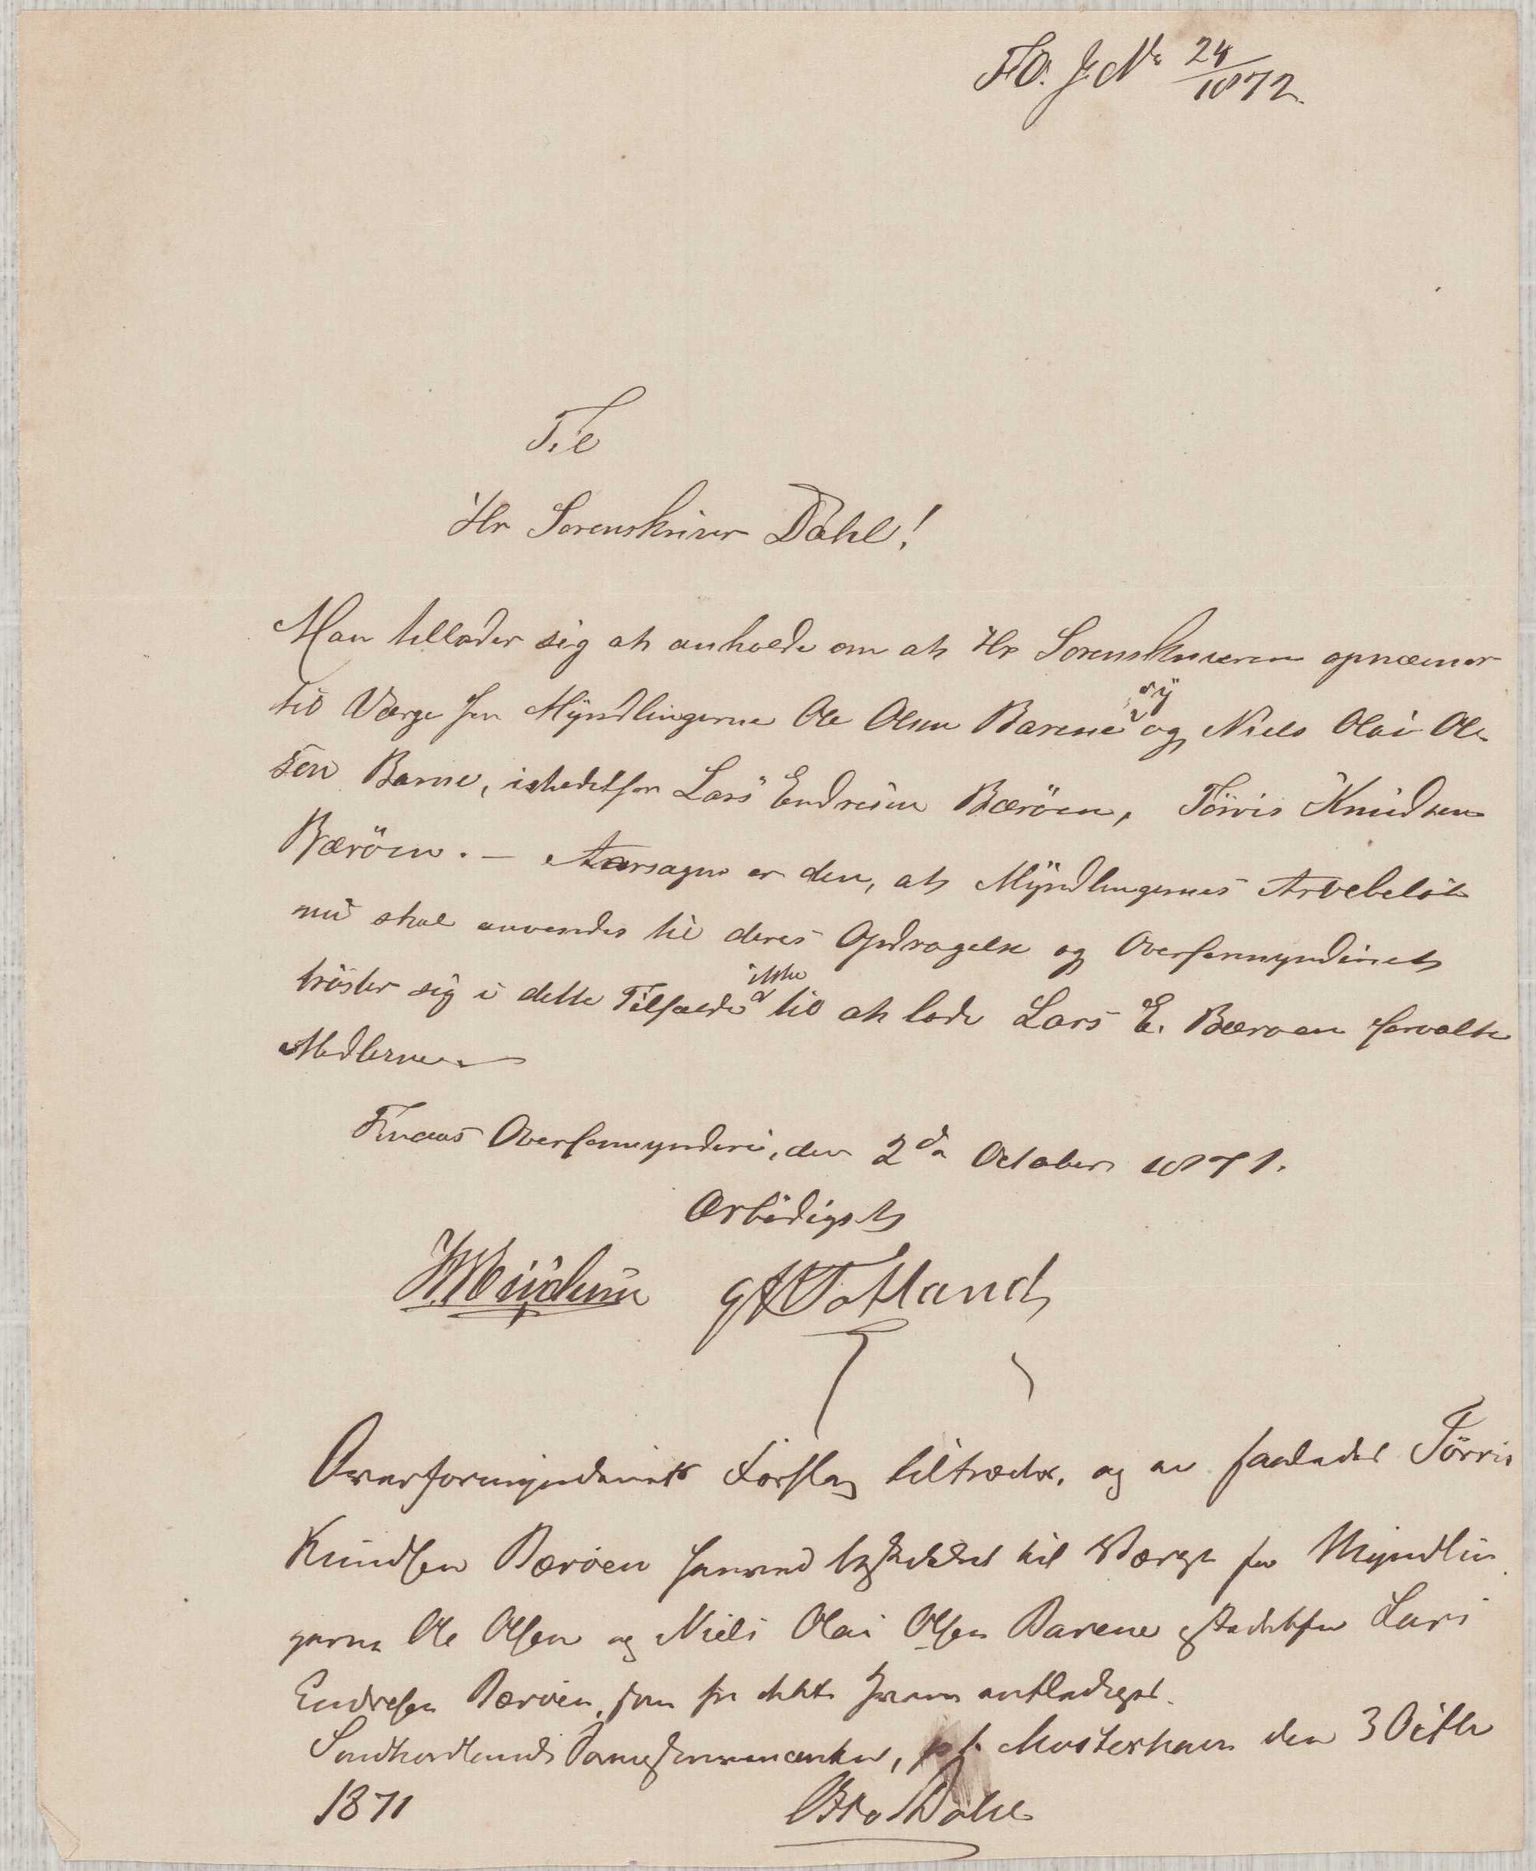 FO. J. No 24/1872.
Til
Hr Sorenskriver Dahl!
Man tillader sig at anholde om at Hr Sorenskriveren opnævner
til Værge for Myndlingerne Ole Olsen Barene og Niels Olai Ol-
sen Barne, istedetfor Lars Endresen Bærøen, Törris Knudsen
Bærøen. — Aarsagen er den, at Myndlingernes Arvebeløb
nu skal anvendes til deres Opdragelse og Overformynderiet
trøster sig i dette Tilfælde ikke til at lade Lars E. Bærøen forvalte
Midlerne.
Finaas Overformynderi, den 2den October 1871.
Ærbödigst
G A Totland
Overformynderiets Forslag tiltrædes, og er saaledes Törris
Knudsen Bærøen herved beskikket til Værge for Myndlin
gerne Ole Olsen og Niels Olai Olsen Barene istedetfor Lars
Endresen Bærøen, som fra dette Hverv entlediges.
Søndhordlands Sorenskriverembede, p. t. Mosterhavn den 3 Octbr
1871 Otto Dahl